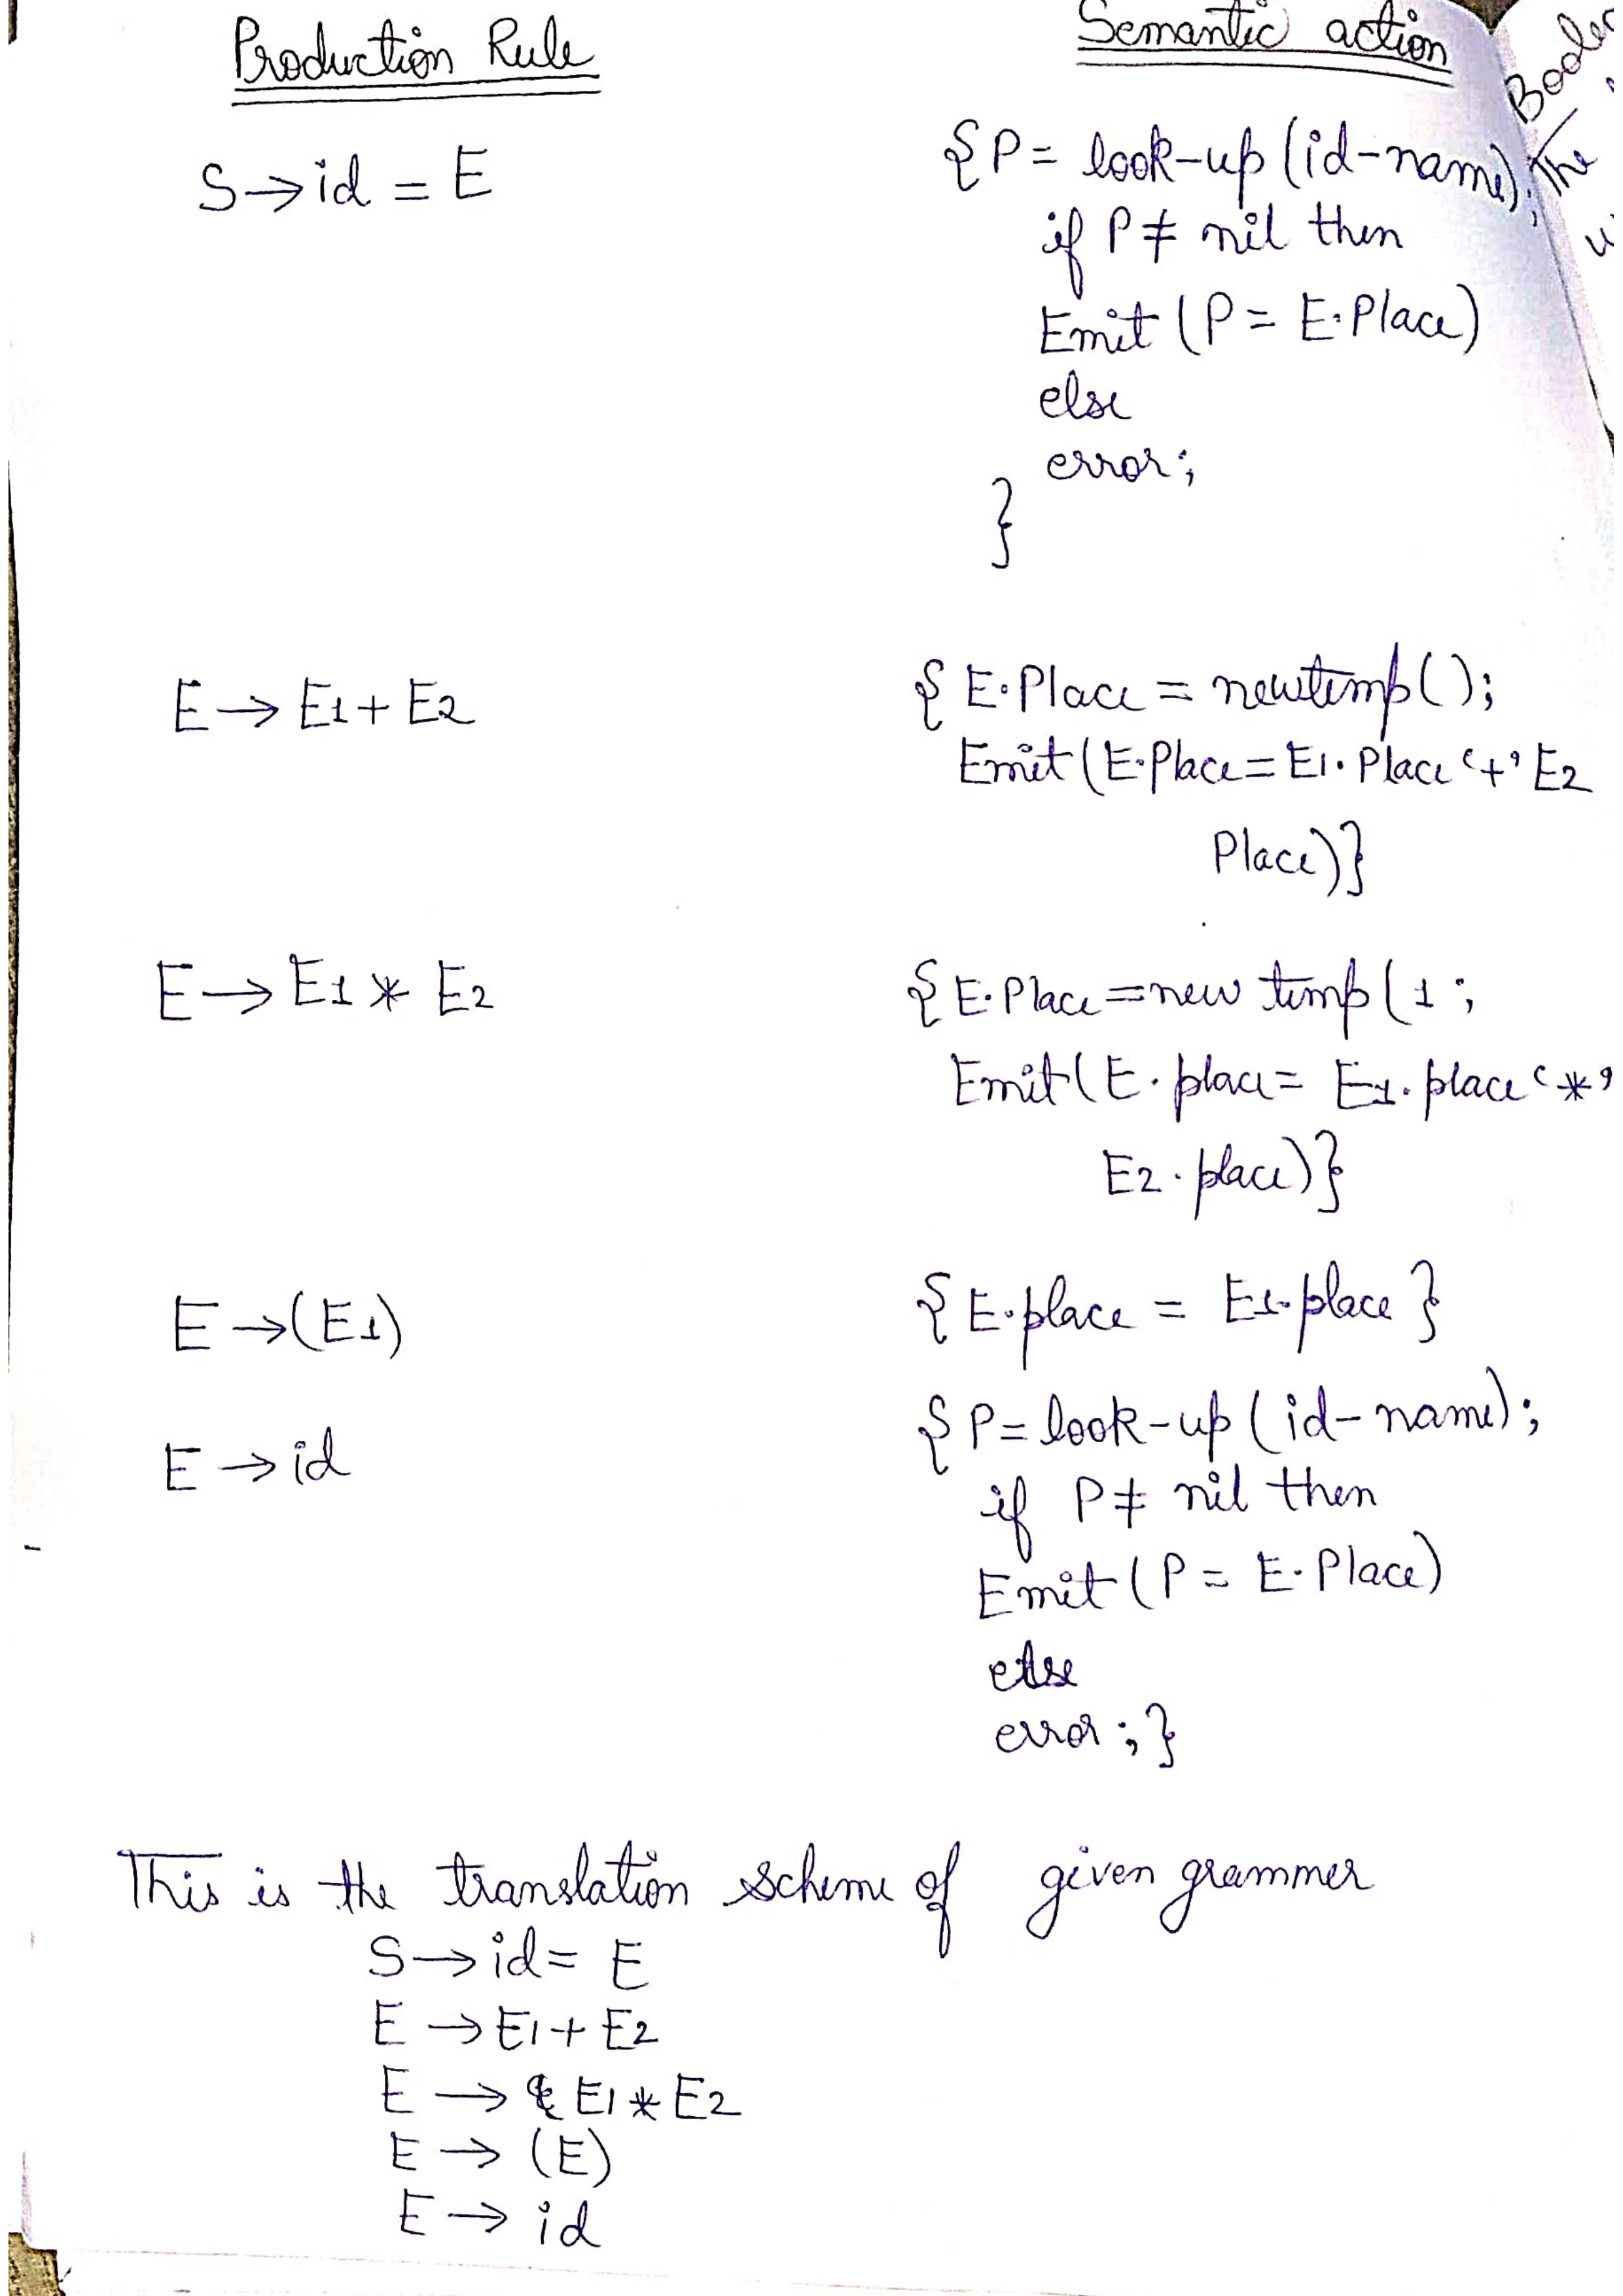 Production Rule
Semantic action
S → id = E
{P = look-up (id-name);
if P ≠ nil then
Emit (P = E.Place)
else
error;
}
E → E1 + E2
{ E.Place = newtemp();
Emit (E.Place = E1.Place '+' E2
Place)}
E → E1 * E2
{ E.Place = new temp(1;
Emit(E.place = E1.place '*'
E2.place)}
E → (E1)
{ E.place = E1.place }
E → id
{ P = look-up (id-name);
if P ≠ nil then
Emit (P = E.Place)
else
error;}
This is the translation scheme of given grammer
S → id = E
E → E1 + E2
E → E1 * E2
E → (E)
E → id
The